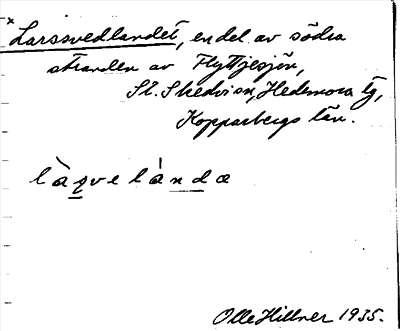 × Larssvedlandet, en del av södra
stranden av Flyttjesjön,
St. Skedvi sn, Hedemora tg,
Kopparbergs län.
làqvelànda
Olle Hillner 1935.